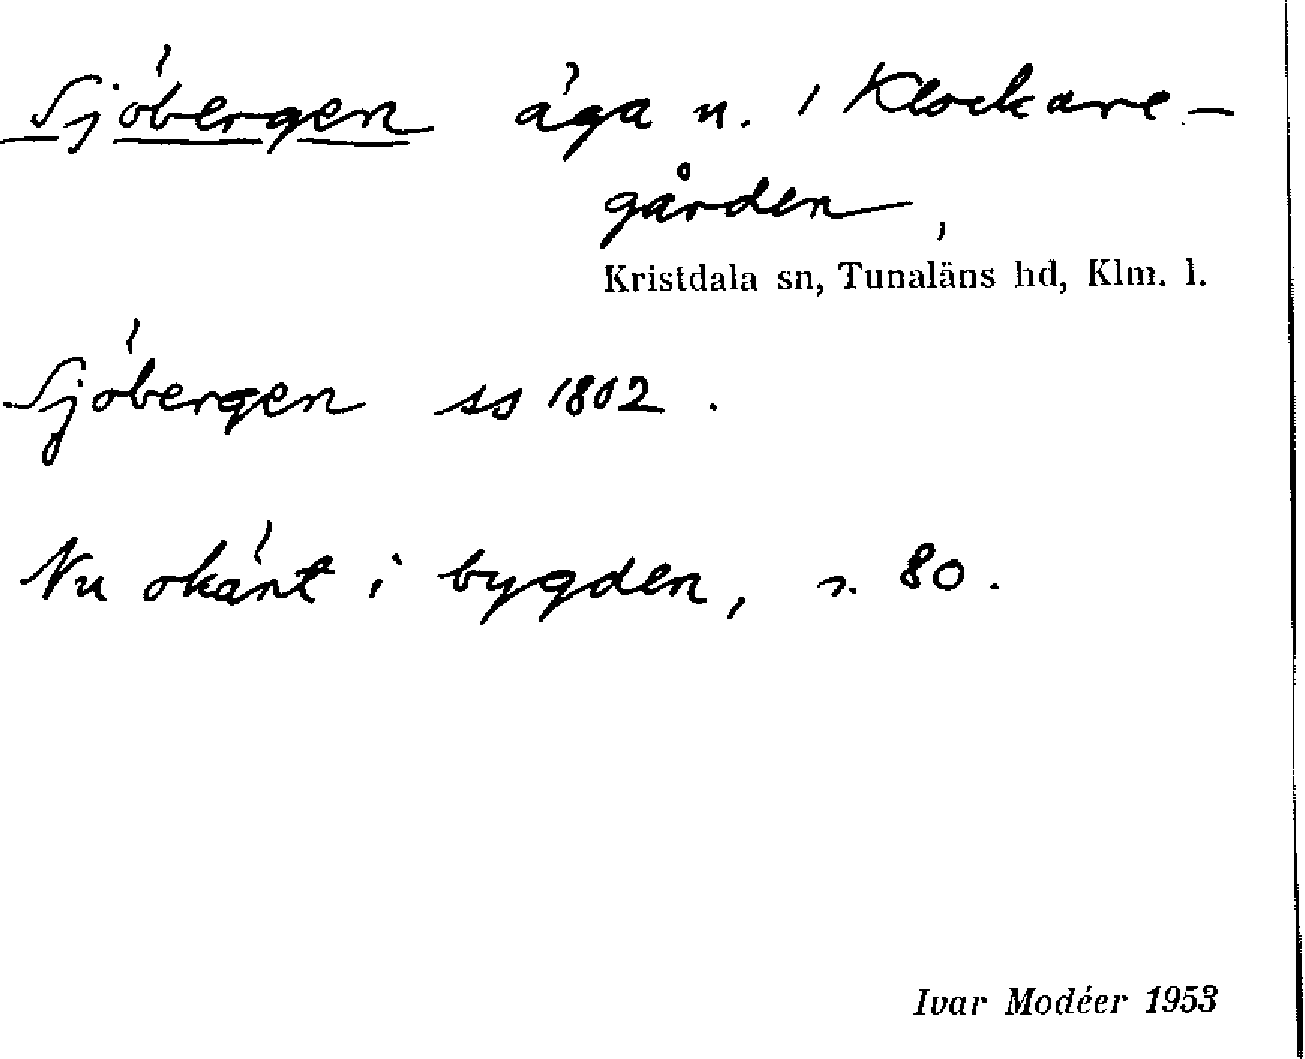 Sjöbergen äga n. i Klockare-
gården,
Kristdala sn, Tunaläns hd, Klm. l.
Sjöbergen ss 1802.
Nu okänt i bygden, s. 80.
Ivar Modéer 1953